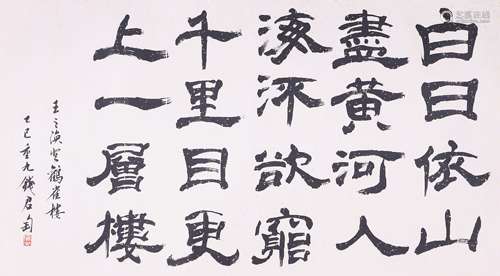 白日依山
盡黃河入
海流欲窮
千里目更
上一層樓
王之渙登鶴雀樓
乙巳重九錢君匋